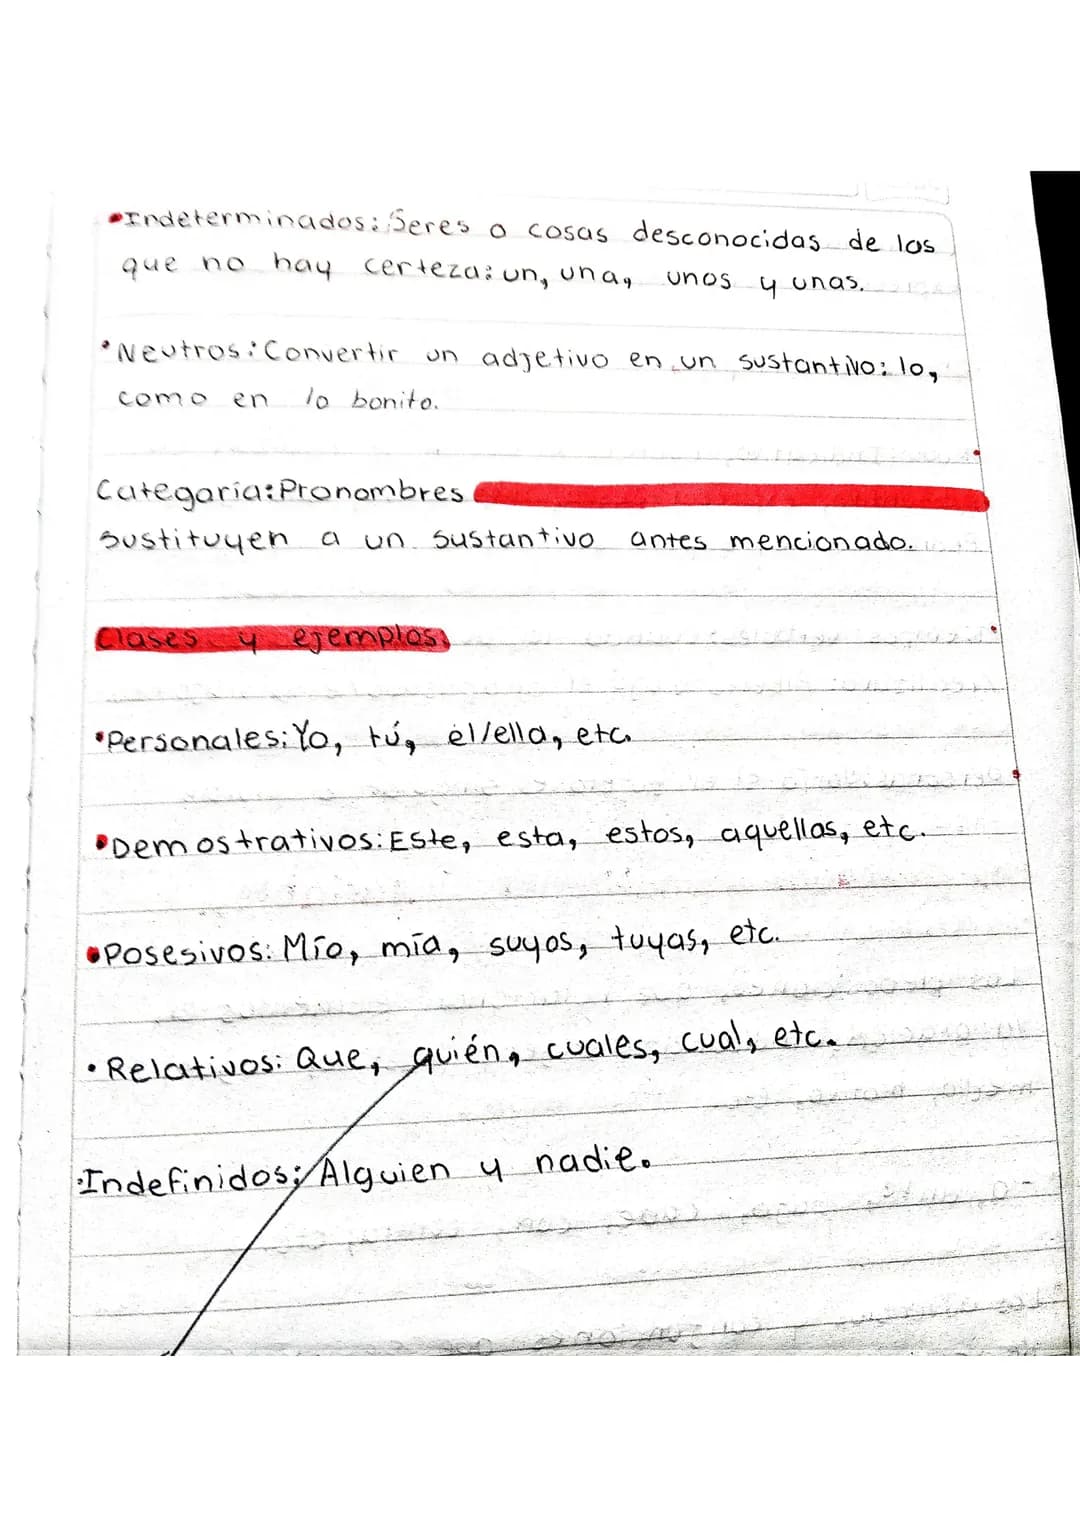 •Indeterminados: Seres o cosas desconocidas de las
que no hay certeza: un, una, unos y unas.
•Neutros: Convertir un adjetivo en un sustantivo: lo,
como en lo bonito.
Categoría: Pronombres
Sustituyen a un sustantivo antes mencionado.
Clases y ejemplos:
•Personales: Yo, tú, él/ella, etc.
•Demostrativos: Este, esta, estos, aquellas, etc.
•Posesivos: Mío, mía, suyos, tuyas, etc.
•Relativos: Que, quién, cuales, cual, etc.
•Indefinidos: Alguien y nadie.